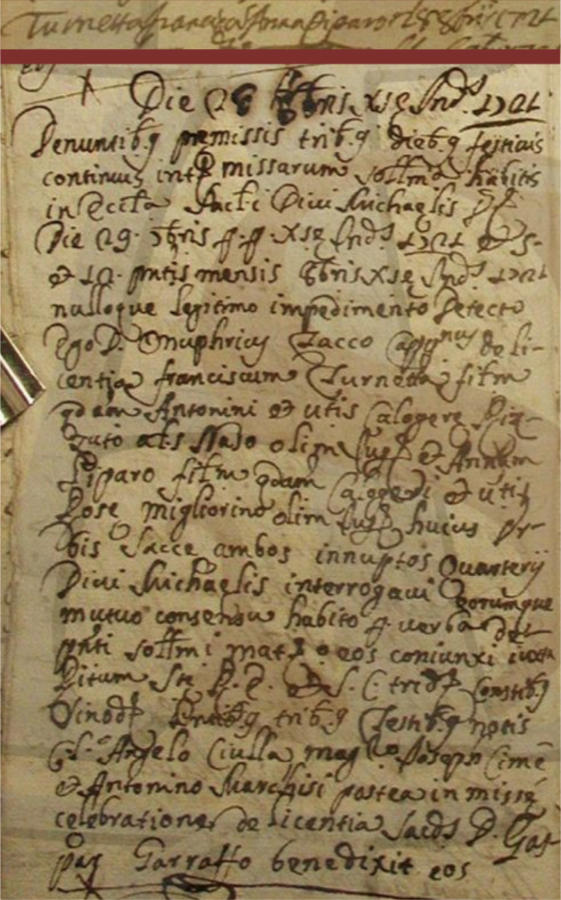 Turnetta francisco Anna Diparo 28 8bris 1721
Die 28 8bris xse Ind.s 1721
Denuntib.q premissis trib.q dieb.q festiuis
continuis int.r missarum sollm.a habitis
in Eccl.a Sacti Diui Michaelis
Die 29. 7bris p.p. xse Ind.s 1721 et 5.
et 12. pntis mensis 8bris xse Ind.s 1721
nulloque legitimo impedimento Detecto
Ego D. Onuphrius Sacco de li-
centia franciscum Turnetta film
qdam Antonini et utis Calogere Dig-
als Naso olim Iug.s et Annam
Diparo film qdam Calogeri et utis
Rose migliorino olim Iug.s huius Vr-
bis Sacce ambos innuptos Quarterij
Diui Michaelis interrogaui eorumque
mutuo consensu habito p. verba de
pnti sollmi mat.o eos coniunxi iuxta
Ritum Ste R. E. et S. C. trid.s Constib.q
Sinod.s Pntib.q trib.q Testib.q notis
Cl. Angelo Ciulla mag.o Joseph Cime
et Antonino Marchisi postea in misse
celebratione de licentia Sacds D. Gas
par Garraffo benedixit eos